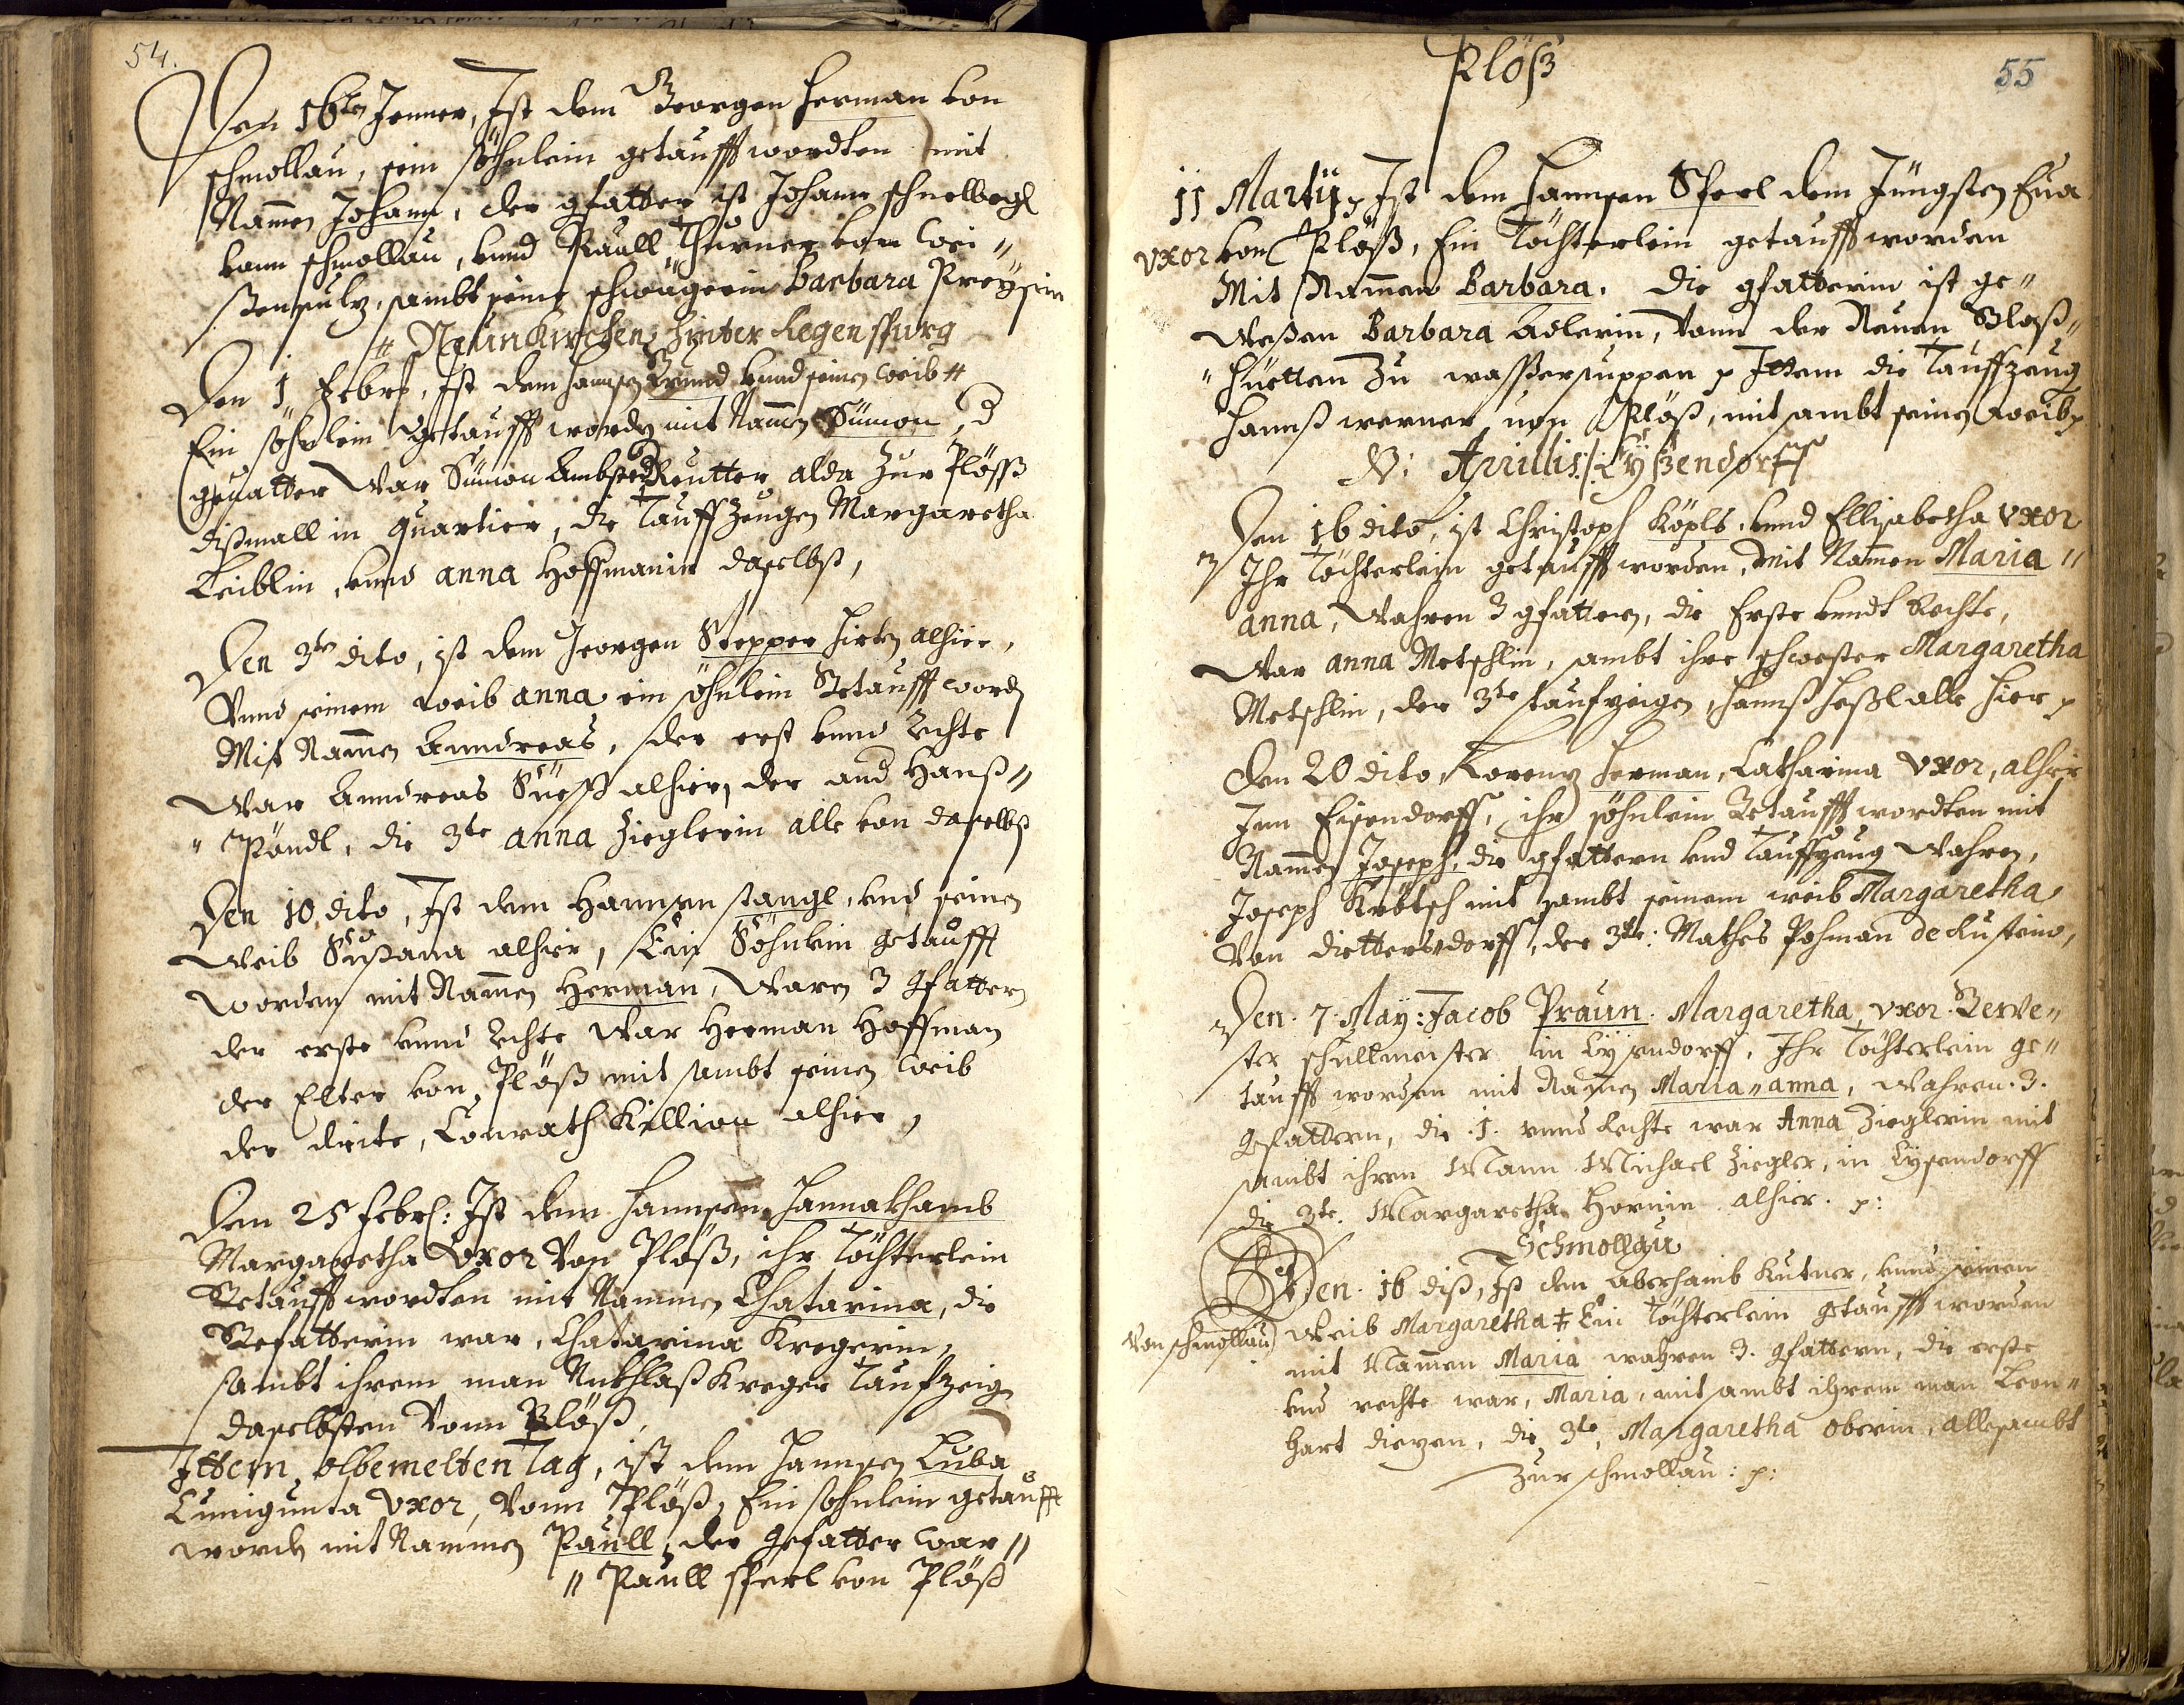 54.
Den 16ten Jenner, Ist dem Georgen Herman von
schmollau, sein söhnlein getaufft wordten mit
Nammen Johann, der gfatter ist Johann schnelbogl
vonn schmollau, vnnd Paull Thürner von Wei"
ßensulz, sambt seine schwägerin Barbara Preysin
# Neünkirchen hinter Regenspurg
Den 1 Febrl, Ist dem Hannsen vnnd seinen weib #
Ein söhnlein getaufft wordn mit Namen Simon, d
gevatter War Simon Reutter alda Zur Plöss
dißmall in quartier, die Tauff Zeugen Margaretha
Leiblin, vnnd anna Hoffmanin daselbst,
Den 3ten dito, ist dem Georgen Stepper hirtn alhier,
Vnnd seinem weib anna ein söhnlein Getaufft wordn
Mit Nammen Anndreas, der erst vnnd Rechte
War Anndreas Süess alhier, der and Hanß"
" Pöndl, die 3te anna Zieglerin alle von daselbst
Den 10 dito, Ist dem Hannsen stangl, vnd seinen
Weib Sußana alhier, Ein Söhnlein getaufft
worden mit Nammen Herman, Waren 3 gfattern
der erste vnnd Rechte War Herman Hoffman
der Elter von Plöß mit sambt seinen weib
der drite, Conrath Killion alhier,
Den 25 Febrl: Ist dem Hannsen Hannakhamb
Margaretha Vxor Von Plöß, ihr Töchterlein
Getaufft wordten mit Nammen Chatarina, die
Gefatterin war, Chatarina Kregerin,
sambt ihrem man Nickhlaß Kreger Taufzeig
daselbsten Vonn Plöß,
Ittem, obbemelten Tag, ist dem Hannsen Luba
Cunigunta Vxor, Vonn Plöß, Ein söhnlein getaufft
wordn mit Nammen Paull, der Gefatter war "
" Paull sperl von Plöß
Plöß
55
11 Martÿ, Ist dem Hannsen Sperl dem Jüngsten Eua
vxor von Plöß, Ein Töchterlein getaufft worden
Mit Nammen Barbara. die gfatterin ist ge"
Weßen Barbara Adlerin, Vonn der Neuen Glaß"
" Hüetten Zu wasserssuppen p Ittem die Tauffzeug
Hannß werner von Plöß, mit sambt seinen weib p
Aprillis / Eyßendorff
Den 16 dito, ist Christoph Köpls, vnnd Ellisabetha vxor
Ihr Töchterlein getaufft worden, mit Nammen Maria "
anna, Wahren 3 gfattern, die Erste vnndt Rechte,
War anna Metschlin, sambt ihre schwester Margaretha
Metschlin, der 3te taufzeigen, Hannß Heßl alle hier p
Den 20 dito, Lorenz Herman, Catharina vxor, alhier
Inn Eisendorff, ihr söhnlein Getaufft wordten mit
Nammen Joseph, die gfattern vnd Tauffzeug Wahren,
Joseph Krötsch mit sambt seinem weib Margaretha
Von dietterstdorff, der 3te: Mathes Pohman
Den. 7. May: Jacob Praun. Margaretha vxor. Gewe"
ster schullmeister in Eysendorff, Ihr Töchterlein ge"
taufft worden mit Nammen Maria " anna, Wahren. 3.
Gefattern, die .1. vnnd Rechte war Anna Zieglerin mit
sambt ihren Mann Michael Ziegler, in Eysendorff
die 3te. Margaretha Hornin alhier. p:
Schmollau
Den. 16 diß, Ist dem Aberhamb Kutner, vnnd seinen
Von schmollau) Weib Margaretha ‡ Ein Töchterlein getaufft worden
mit Nammen Maria wahren 3. gfattern, die erste
vnd rechte war, Maria, mit sambt ihrem man Leon"
hart diezen, die 3te, Margaretha oberin, allesambt
Zur schmollau: p: